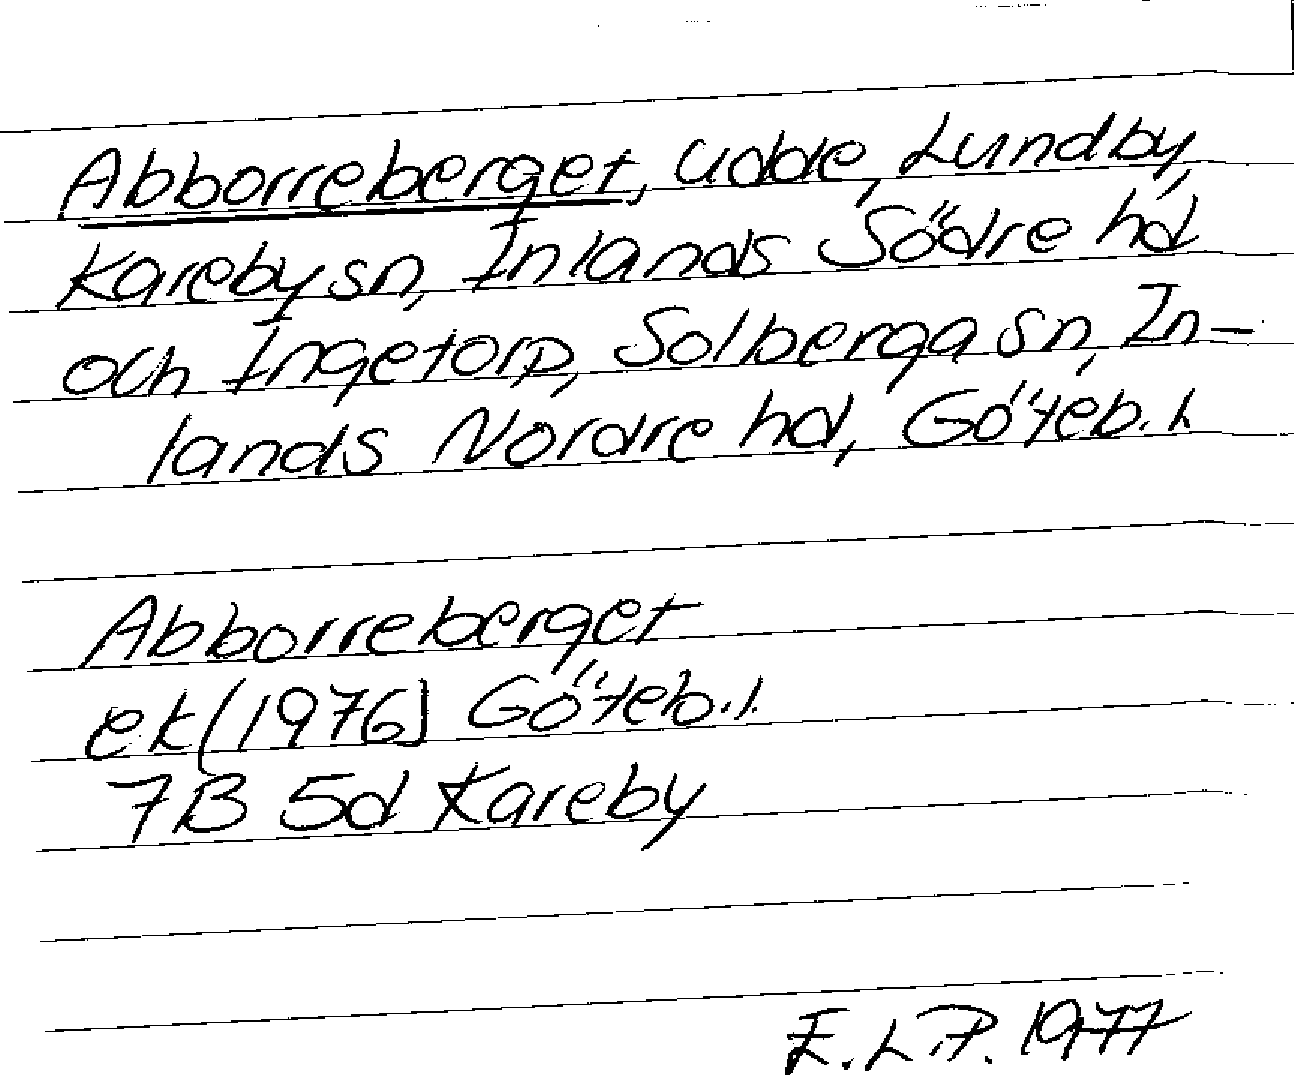 Abborreberget, udde, Lundby,
Kareby sn, Inlands Södre hd
och Ingetorp, Solberga sn, In-
lands Nordre hd, Göteb. l.
Abborreberget
ek (1976) Göteb. l.
7B 5d Kareby
E.L.P. 1977